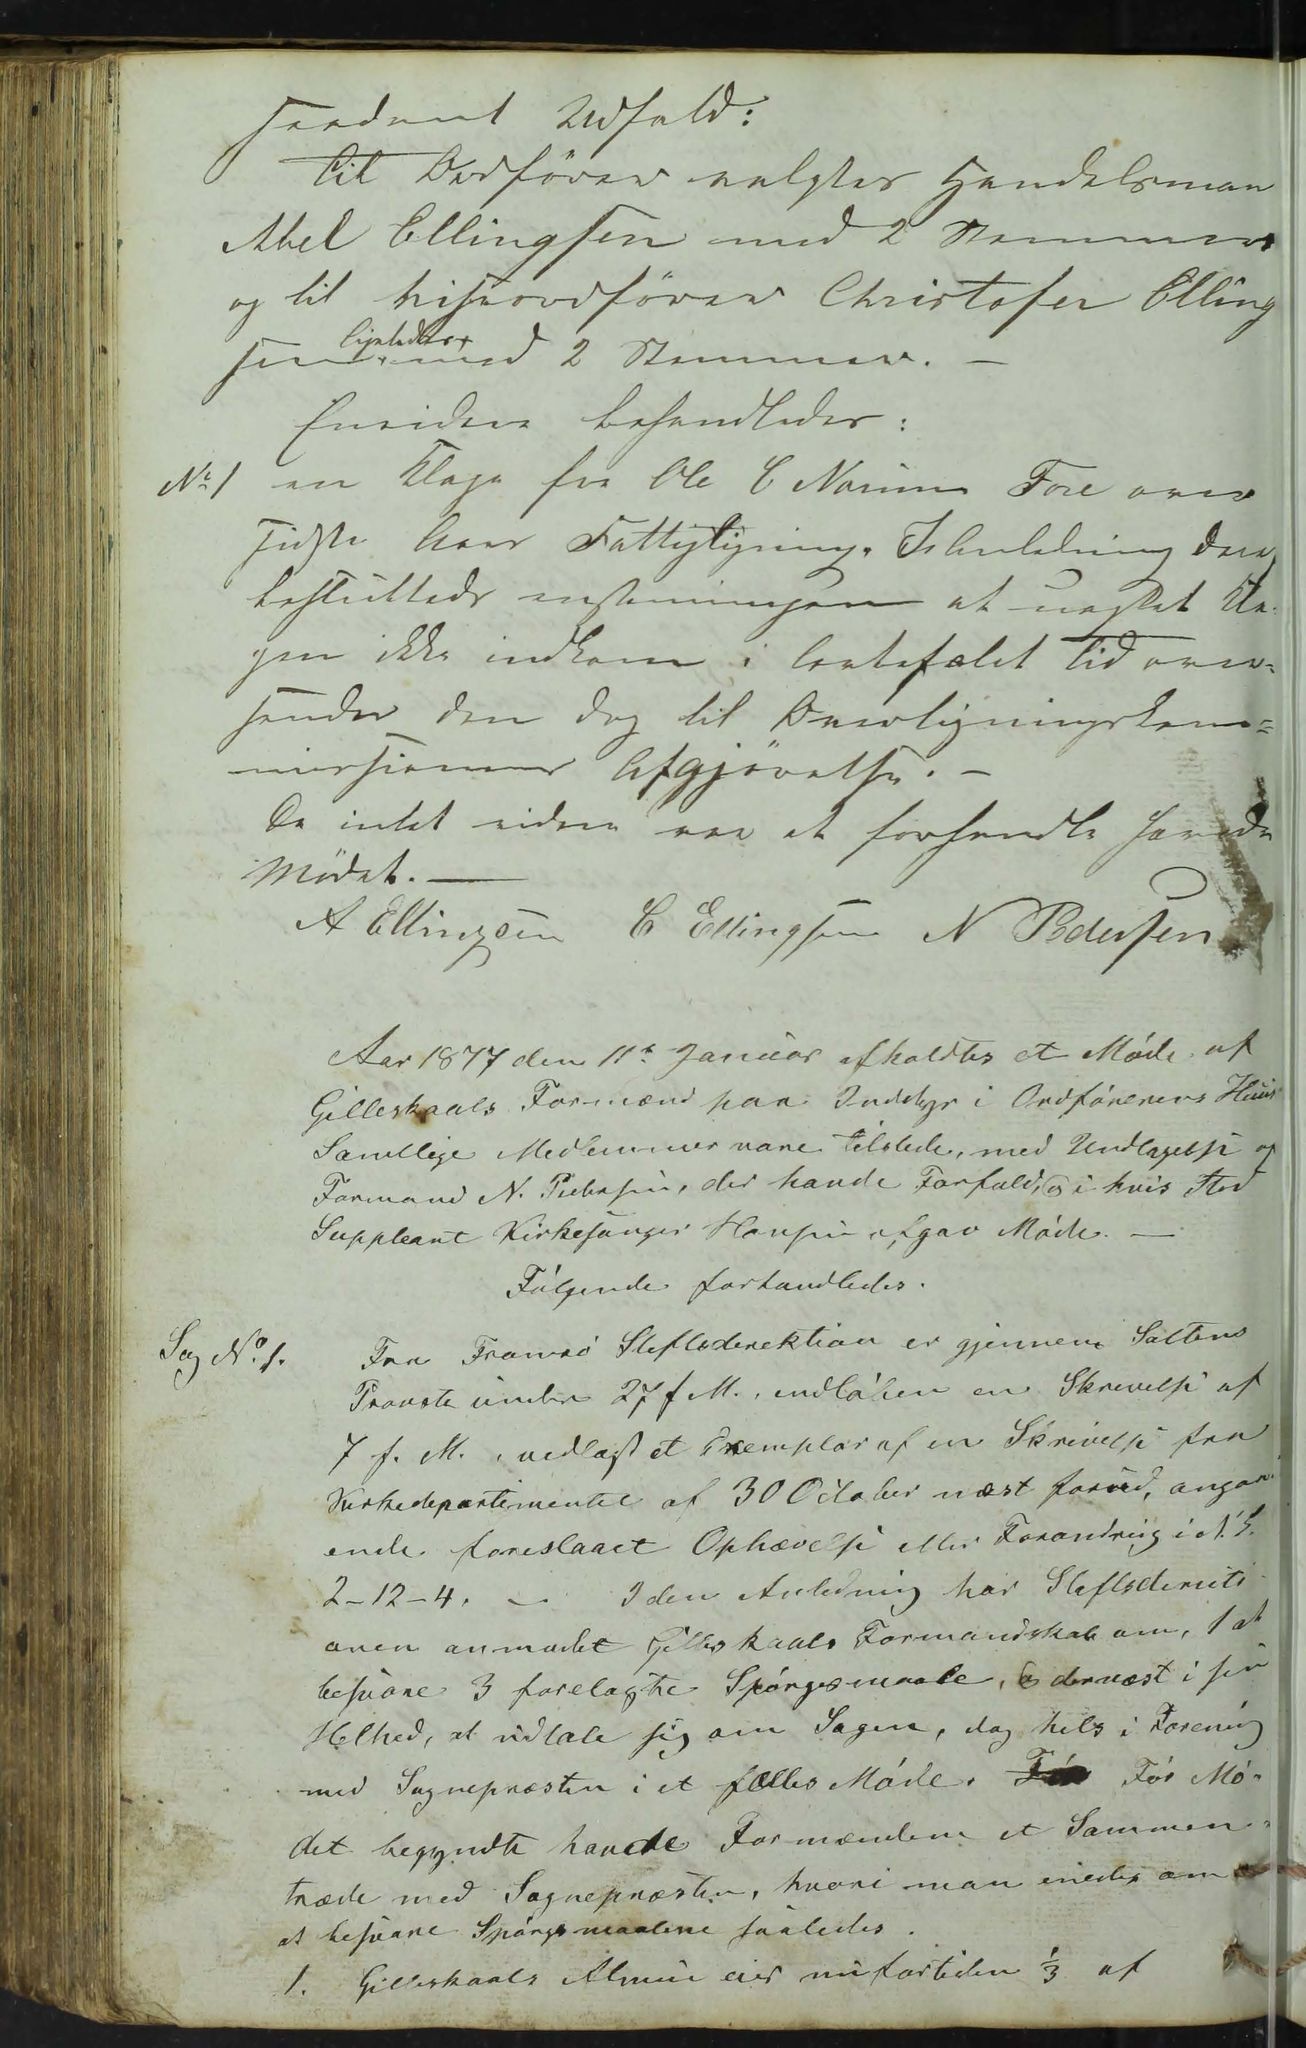 saadant Udfald:
Til Ordförer valgtes Handelsman
Abel Ellingsen med 2 Stemmer
og til Viseordförer Christofer Elling
sen ligeledes med 2 Stemmer. —
Envidere behandledes:
No 1 en Klage fra Ole C Fore over
sidste Aars Fattigligning. I Anledning deraf
besluttedes enstemmigen at uagtet Kla-
gen ikke indkom i lovbefalet Tid over-
sendes den dog til Overligningskom=
missionens Afgjörelse. —
Da intet videre var at forhandle hævedes
Mödet. —
A Ellingsen C Ellingsen N Pedersen
Aar 1877 den 11te Januar afholdtes et Möde af
Gilleskaals Formænd paa Inddyr i Ordförerens Huus
Samtlige Medlemmer vare tilstede, med Undtagelse af
Formand N. Pedersen, der havde Forfald, og i hvis Sted
Suppleant Kirkesanger Hansen afgav Möde. —
Fölgende forhandledes.
Sag No. 1. Fra Tromsö Stiftsdirektion er gjennem Saltens
Provste under 27 f M. indlöben en Skrivelse af
7 f. M., vedlagt et Exemplar af en Skrivelse fra
Kirkedepartementet af 30 October næst forud, angaa-
ende foreslaaet Ophævelse eller Forandring i N. L.
2-12-4. — I den Anledning har Stiftsdirecti
onen anmodet Gilleskaals Formandskab om, 1 at
besvare 3 forelagte Spörgsmaale, og dernæst i sin
Helhed, at udtale sig om Sagen, dog helst i Forening
med Sognepræsten i et fælles Möde. För Mö-
det begyndte havde Formændene et Sammen-
træde med Sognepræsten, hvori man enedes om
at besvare Spörgsmaalene saaledes.
1. Gilleskaals Almue eier nu fortiden 1/3 af